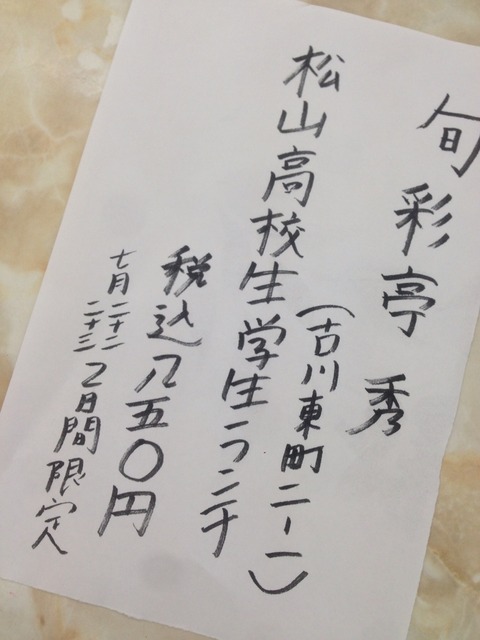 旬彩亭 秀
(古川東町二ー一)
松山高校生学生ランチ
税込八五〇円
七月二十二
二十三
2日間限定